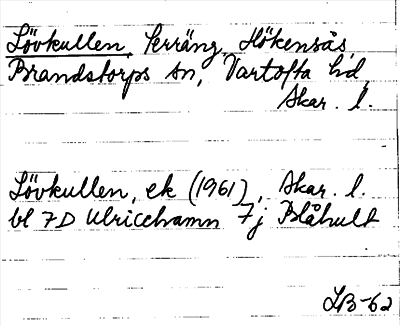 Lövkullen, terräng, Hökensås,
Brandstorps sn, Vartofta hd,
Skar. l.
Lövkullen, ek (1961), Skar. l.
bl 7D Ulricehamn 7j Blåhult
LB-62